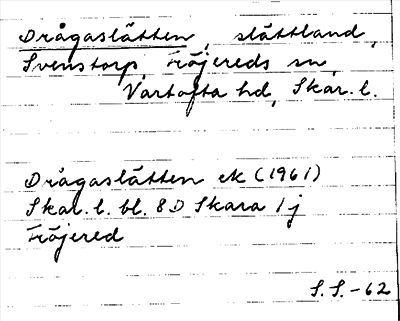 Drågaslätten, slättland,
Svenstorp, Fröjereds sn,
Vartofta hd, Skar. l.
Drågaslätten ek (1961)
Skar. l. bl. 8D Skara 1j
Fröjered
S.S.-62